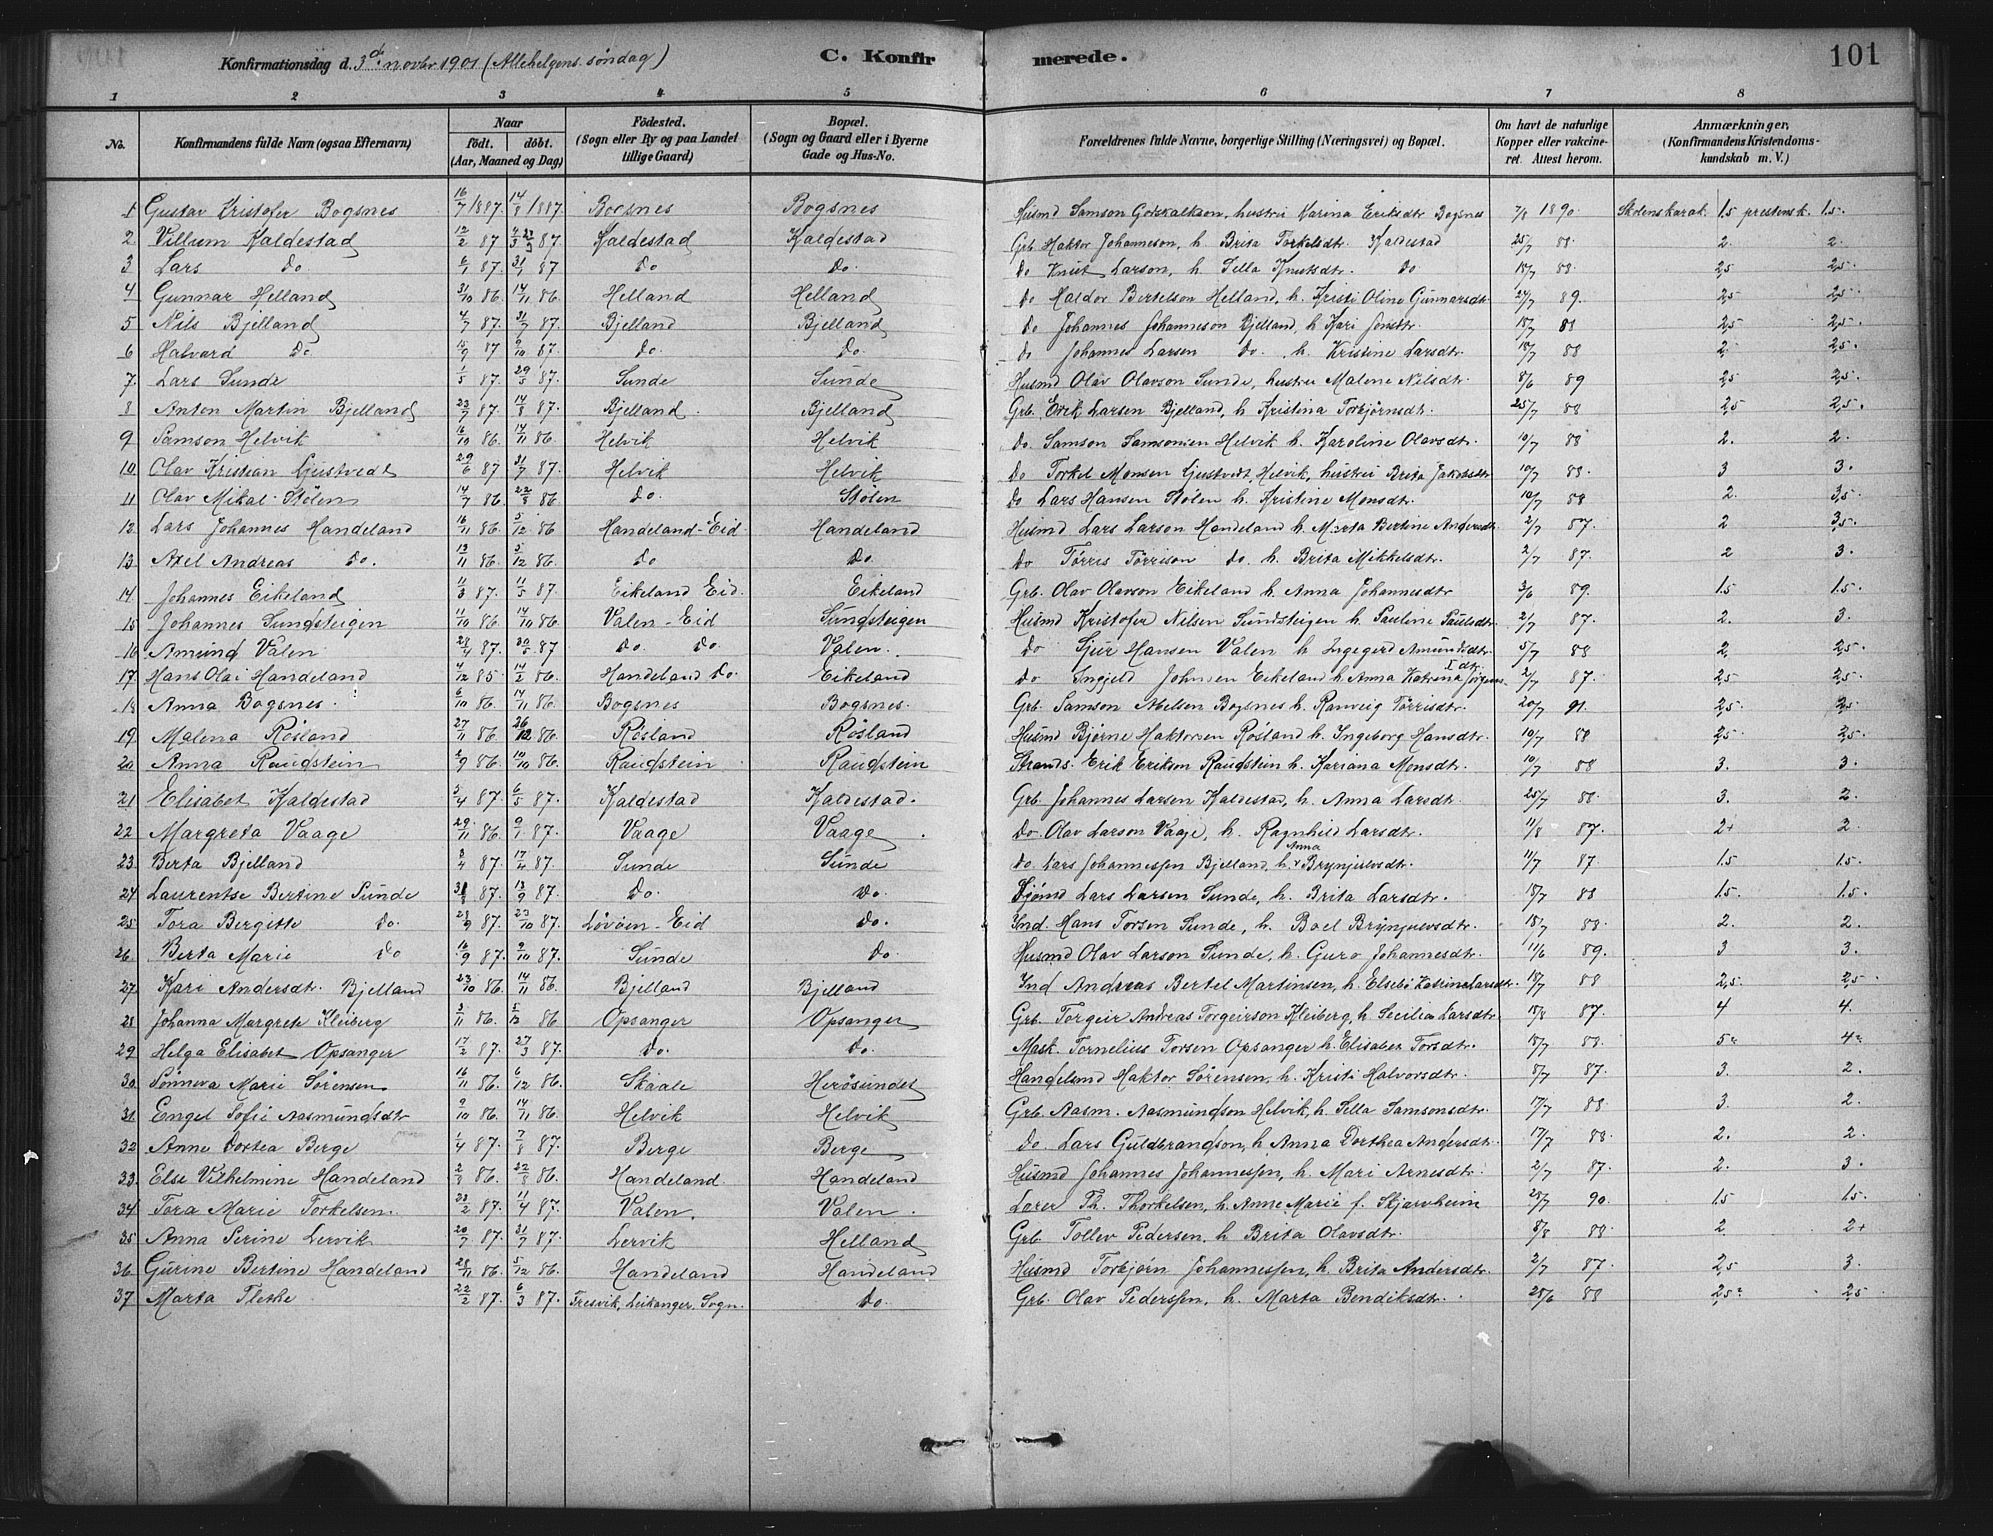 Konfirmationsdag d. 3d. novbr 1901 (Allehelgens søndag) C. Konfirmerede. 101
1 2 3 4 5 6 7 8
No. Konfirmandens fulde Navn (ogsaa Efternavn) Naar født. døbt. (Aar, Maaned og Dag) Födested. (Sogn eller By og paa Landet tillige Gaard) Bopæl. (Sogn og Gaard eller i Byerne Gade og Hus-No. Forældrenes fulde Navne, borgerlige Stilling (Næringsvei) og Bopæl. Om havt de naturlige Kopper eller vakcineret. Attest herom. Anmærkninger, (Konfirmandens Kristendomskundskab m. V.)
1 Gustav Kristofer Bogsnes 16/7 1887. 14/8 1887. Bogsnes Bogsnes Husmd Samson Gotskalkson, hustru Karina Eriksdtr Bogsnes 7/8 1890 Skolens karak. 1.5 prestens k. 1.5.
2 Villum Kaldestad 12/2 87. 87. Kaldestad Kaldestad Grb. Haktor Johanneson, h. Brita Torkelsdtr. Kaldestad 25/7 88. 2. 2.
3 Lars Do. 6/1 87. 31/1 87 Do Do. Do Knut Larson, h. Silla Knutsdtr. Do 18/7 88. 2,5 2,5.
4 Gunnar Helland 31/10 86. 14/11 86. Helland Helland Do Haldor Bertelson Helland, h. Kristi Oline Gunnarsdtr. 27/7 89. 2,5 2,5.
5 Nils Bjelland 4/7 87. 31/7 87. Bjelland Bjelland Do Johannes Johanneson Bjelland, h. Kari Jonsdtr. 18/7 88 2,5 2,5.
6 Halvard Do 15/9 87 9/10 87. Do. Do. Do Johannes Larsen Do. h. Kristine Larsdtr. 18/7 88 2. 2,5.
7. Lars Sunde 1/5 87. 29/5 87. Sunde Sunde Husmd Olav Olavson Sunde, hustru Malene Nilsdtr. 8/6 89 2,5 2,5.
8 Anton Martin Bjelland 23/7 87. 14/8 87. Bjelland. Bjelland Grb. Erik Larsen Bjelland, h Kristina Torbjørnsdtr. 25/7 88 2,5 2,5.
9 Samson Helvik 16/10 86. 14/11 86. Helvik Helvik Do. Samson Samsonsen Helvik h. Karoline Olavsdtr. 10/7 88 2. 2.
10 Olav Kristian Ljustvedt 29/6 87 31/7 87. Helvik Helvik Do Torkel Monsen Ljustvedt, Helvik, hustru Brita Jakobsdtr 10/7 88. 3 3.
11 Olav Mikal Stølen 14/7 86 22/8 86 Do. Stølen Do Lars Hansen Stølen h. Kristine Monsdtr. 10/7 88 2. 3,5.
12. Lars Johannes Handeland 16/11 86. 5/12 86 Handeland-Eid Handeland Husmd Lars Larson Handeland h. Marta Bertine Andersdtr. 2/7 87. 2 3,5.
13. Axel Andreas Do. 13/11 86. 5/12 86. Do Do. Do Tørris Tørrison Do. h. Brita Mikkelsdtr. 2/7 87. 2 3.
14 Johannes Eikeland 11/3 87. 11/5 87. Eikeland Eid. Eikeland Grb. Olav Olavson Eikeland h. Anna Johannesdtr 3/6 89. 1.5 1.5.
15. Johannes Sundsteigen 11/10 86. 14/10 86. Valen-Eid Sundsteigen Husmd Kristofer Nilsen Sundsteigen h. Pauline Paulsdtr. 2/7 87. 2. 3.
16 Amund Valen 28/4 87. 30/5 87 Do. Do. Valen. Do Sjur Hansen Valen h. Ingegerd Amundsdtr. 5/7 88 2. 2,5.
17. Hans Olai Handeland 4/12 85. 14/2 86. Handeland Do. Eikeland Do Ingjeld Johnsen Eikeland h. Anna Katrina Jørgensdtr. 2/7 87. 2,5 2,5.
18 Anna Bogsnes. 6/10 86. 14/11 86. Bogsnes Bogsnes. Grb. Samson Abelsen Bogsnes h. Ranveig Tørrisdtr. 20/7 91. 2,5. 2,5.
19. Malena Røsland 27/11 86 26/12 86. Røsland Røsland Husmd Bjørne Haktorsen Røsland h. Ingeborg Hansdtr. 10/7 88 2,5. 2,5.
20 Anna Raudstein 2/9 86. 10/10 86. Raudstein. Raudstein Strands. Erik Erikson Raudstein h. Kariana Monsdtr. 10/7 88 3. 3.
21 Elisabet Kaldestad 3/4 87. 6/5 87. Kaldestad Kaldestad. Grb. Johannes Larsen Kaldestad, h. Anna Larsdtr. 25/7 88. 3. 2.
22. Margreta Vaage 29/11 86. 9/1 87. Vaage Vaage Do. Olav Larson Vaage, h. Ragnhild Larsdtr. 11/8 87. 2+ 2.
23. Berta Bjelland 3/4 87. 17/4 87. Sunde Sunde Do. Lars Johannessen Bjelland, h. Anna Brynjulvsdtr. 11/7 87. 1.5 1.5.
24. Laurentse Bertine Sunde 87. 18/9 87. Do. Do. Sjømd Lars Larsen Sunde, h. Brita Larsdtr. 18/7 88 1.5. 1.5.
25. Tora Bergitte Do. 28/9 87. 23/10 87. Løvøen-Eid Do. Ind. Hans Torsen Sunde, h. Boel Brynjulvsdtr. 18/7 88. 2. 2.
26. Berta Marie Do 16/9 87. 9/10 87. Sunde Do. Husmd Olav Larson Sunde, h. Guro Johannesdtr. 11/6 89. 3 3.
27. Kari Andersdtr. Bjelland 23/10 86. 14/11 86. Bjelland Bjelland Ind Andreas Bertel Martinsen, h. Elsebe Katrine Larsdtr. 18/7 88 2,5. 2,5.
28 Johanna Margrete Kleiberg 3/11 86. 5/12 86 Opsanger Opsanger Grb. Torgeir Andreas Torgeirson Kleiberg, h. Secilia Larsdtr. 18/8 87. 4 4.
29 Helga Elisabet Opsanger 17/2 87. 27/3 87. Do. Do. Mask. Tornelius Torsen Opsanger h. Elisabet Torsdtr. 18/7 88. 5 4
30. Sønneva Marie Sørensen 16/11 86. 6/12 86. Skaale Herøsundet Handelsmd Haktor Sørensen, h. Kristi Halvorsdtr. 8/7 87. 3. 2.
31. Engel Sofie Aasmundsdtr 9/10 86. 14/11 86. Helvik Helvik Grb. Aasm. Aasmundson Helvik, h. Silla Samsonsdtr. 17/7 88. 3. 2.
32 Anne Dortea Berge 1/4 87. 7/8 87. Berge Berge Do. Lars Guldbrandson, h. Anna Dorthea Andersdtr. 17/7 88. 2. 2.
33. Else Vilhelmine Handeland 2/8 86. 22/8 86. Handeland. Handeland Husmd Johannes Johannessen, h. Mari Arnesdtr. 2/7 87. 2. 3.
34. Tora Marie Torkelsen. 28/2 87. 11/4 87. Valen. Valen. Lærer Th. Thorkelsen, h. Anne Marie f. Skjærvheim 28/7 90. 1.5 1.5.
35. Anna Serine Lervik 20/7 87. 31/7 87. Lervik Helland Grb. Tollev Pedersen, h. Brita Olavsdtr. 8/8 88. 2. 2+
36. Gurine Bertine Handeland 28/11 86. 5/12 86. Handeland Handeland Husmd Torbjørn Johannessen, h. Brita Andersdtr. 2/7 87. 2,5 3.
37. Marta Fletke 22/2 87. 6/3 87. Fresvik, Leikanger. Sogn. Do. Grb. Olav Pederssen, h. Marta Bendiksdtr. 25/6 88 2,5 2,5